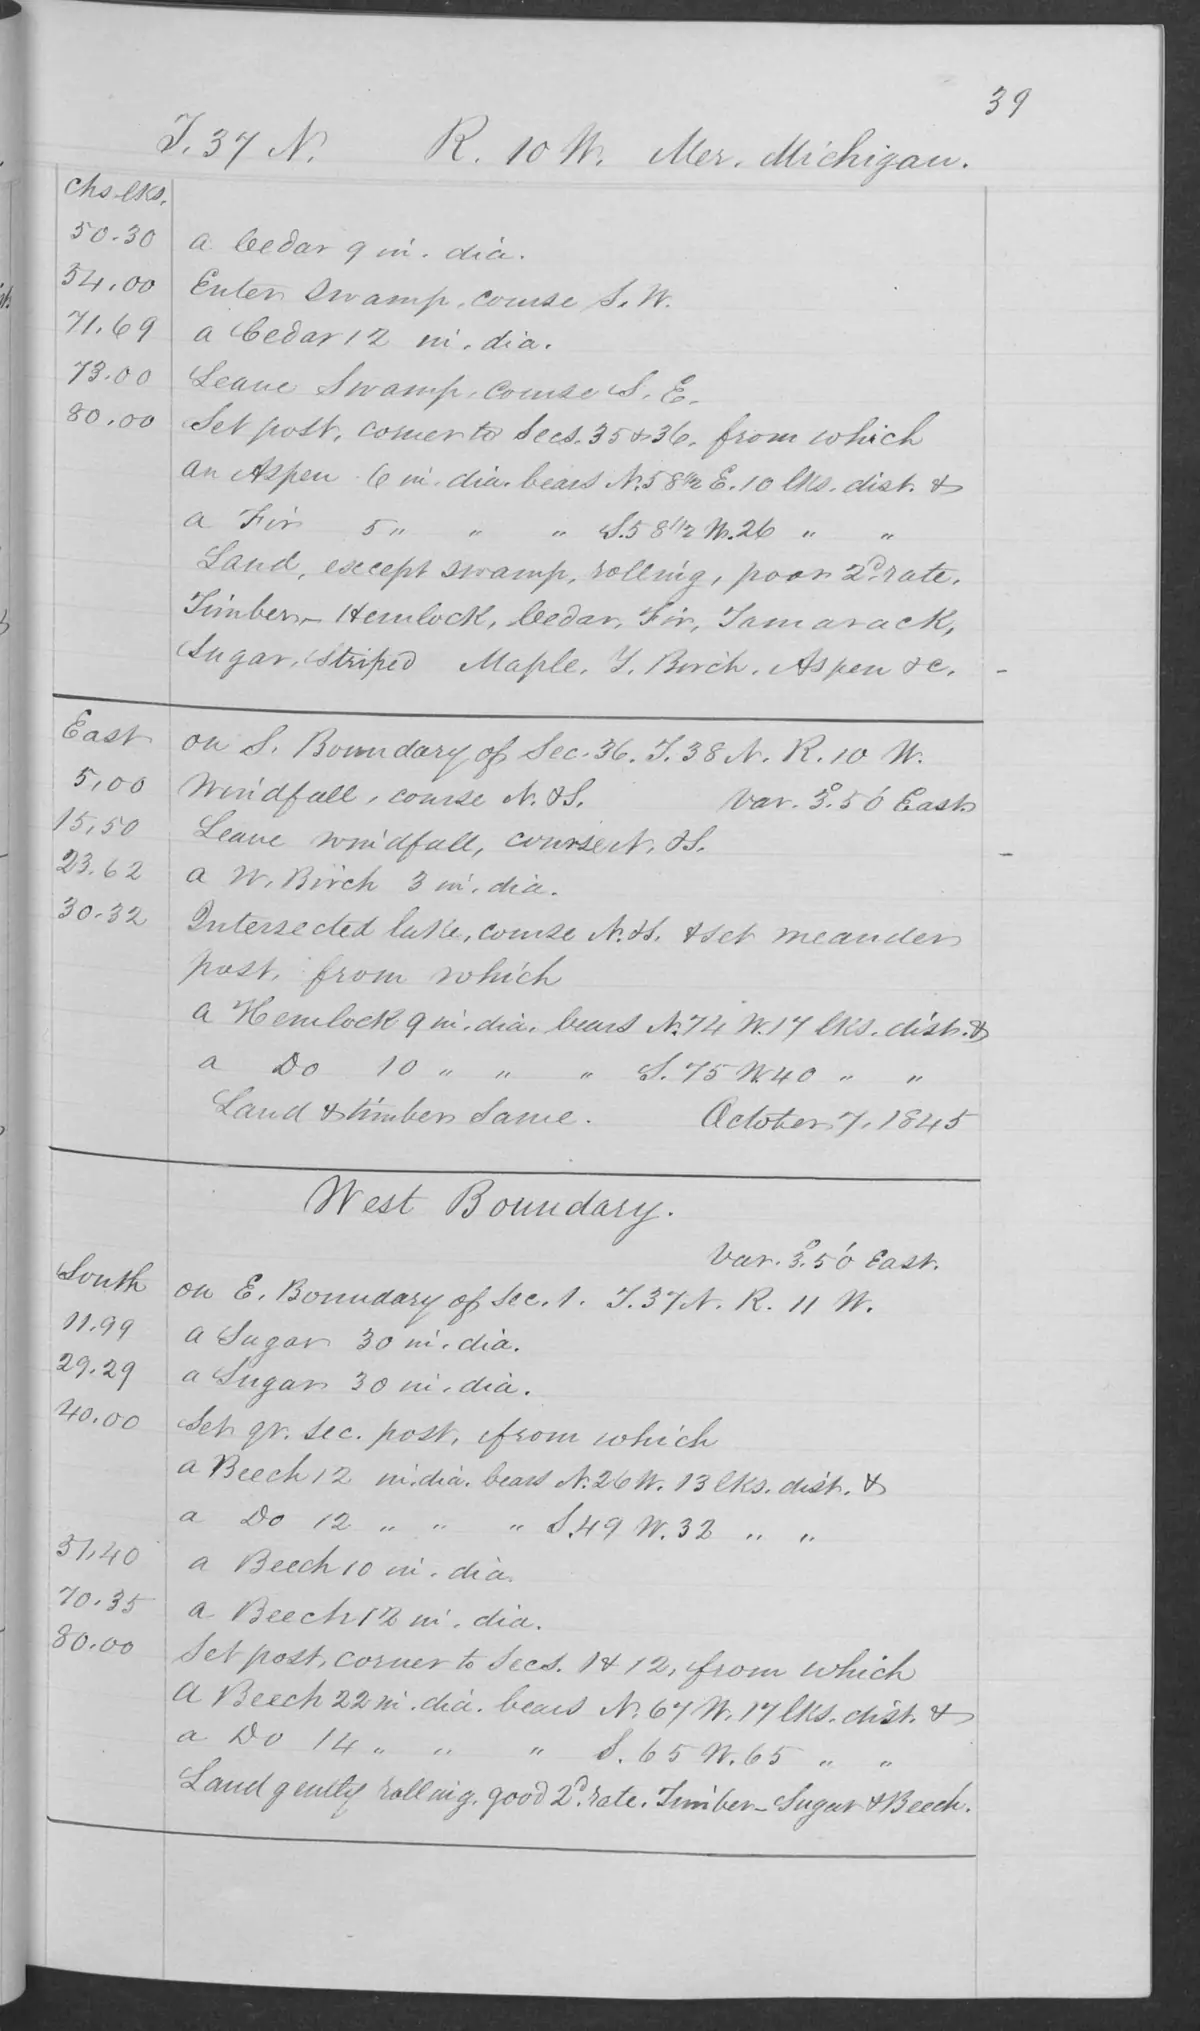 39
T. 37 N. R. 10 W. Mer. Michigan.
Chs. lks.
50.30 a Cedar 9 in. dia.
54.00 Enter Swamp, course S. W.
71.69 a Cedar 12 in. dia.
73.00 Leave Swamp, course S. E.
80.00 Set post, corner to Secs. 35 & 36, from which
an Aspen 6 in. dia. bears N. 58 1/2 E. 10 lks. dist. &
a Fir 5 " " " S. 58 1/2 W. 26 " "
Land, except swamp, rolling, poor 2d. rate.
Timber - Hemlock, Cedar, Fir, Tamarack,
Sugar, Striped Maple, Y. Birch, Aspen &c.
East on S. Boundary of Sec. 36. T. 38 N. R. 10 W.
5.00 Windfall, course N. & S. Var. 3° 50' East
15.50 Leave windfall, course N. & S.
23.62 a W. Birch 3 in. dia.
30.32 Intersected lake, course N. & S. & set meander
post, from which
a Hemlock 9 in. dia. bears N. 74 W. 17 lks. dist. &
a Do 10 " " " S. 75 W. 40 " "
Land & timber Same. October 7, 1845
West Boundary.
Var. 3° 50' East.
South on E. Boundary of Sec. 1. T. 37 N. R. 11 W.
11.99 a Sugar 30 in. dia.
29.29 a Sugar 30 in. dia.
40.00 Set qr. Sec. post, from which
a Beech 12 in. dia. bears N. 26 W. 13 lks. dist. &
a Do 12 " " " S. 49 W. 32 " "
51.40 a Beech 10 in. dia.
70.35 a Beech 12 in. dia.
80.00 Set post, corner to Secs. 1 & 12, from which
A Beech 22 in. dia. bears N. 67 W. 17 lks. dist. &
a Do 14 " " " S. 65 W. 65 " "
Land gently rolling, good 2d. rate. Timber - Sugar & Beech.